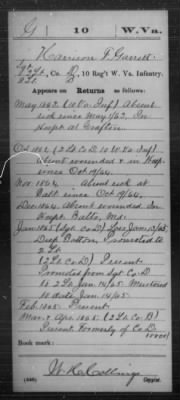 G | 10 | W. Va.
Harrison F. Garrett
2d Lt., Co. D, 10 Reg't W. Va. Infantry.
Appears on Returns as follows:
May 1863. (10 Va Inf) Absent
sick since May 1/63. In
Hospt at Grafton.
Oct 1864. (2 Lt Co D 10 W. Va Inf)
Absent wounded & in Hosp
since Oct 19/64.
Nov 1864. Absent sick at
Balt since Oct 19/64.
Dec 1864. Absent wounded. In
Hospt. Balto, Md.
Jan 1865 (Sgt. Co D)
Deep Bottom. Promoted to
2 Lt.
(2 Lt Co D) Present.
Promoted from Sgt Co. D
to 2 Lt Jan 14/65. Mustered
to date Jan 14/65.
Feb. 1865. Present.
Mar. & Apr. 1865 (2 Lt Co. B)
Present. Formerly of Co. D.
Book mark:
(446)
Copyist.